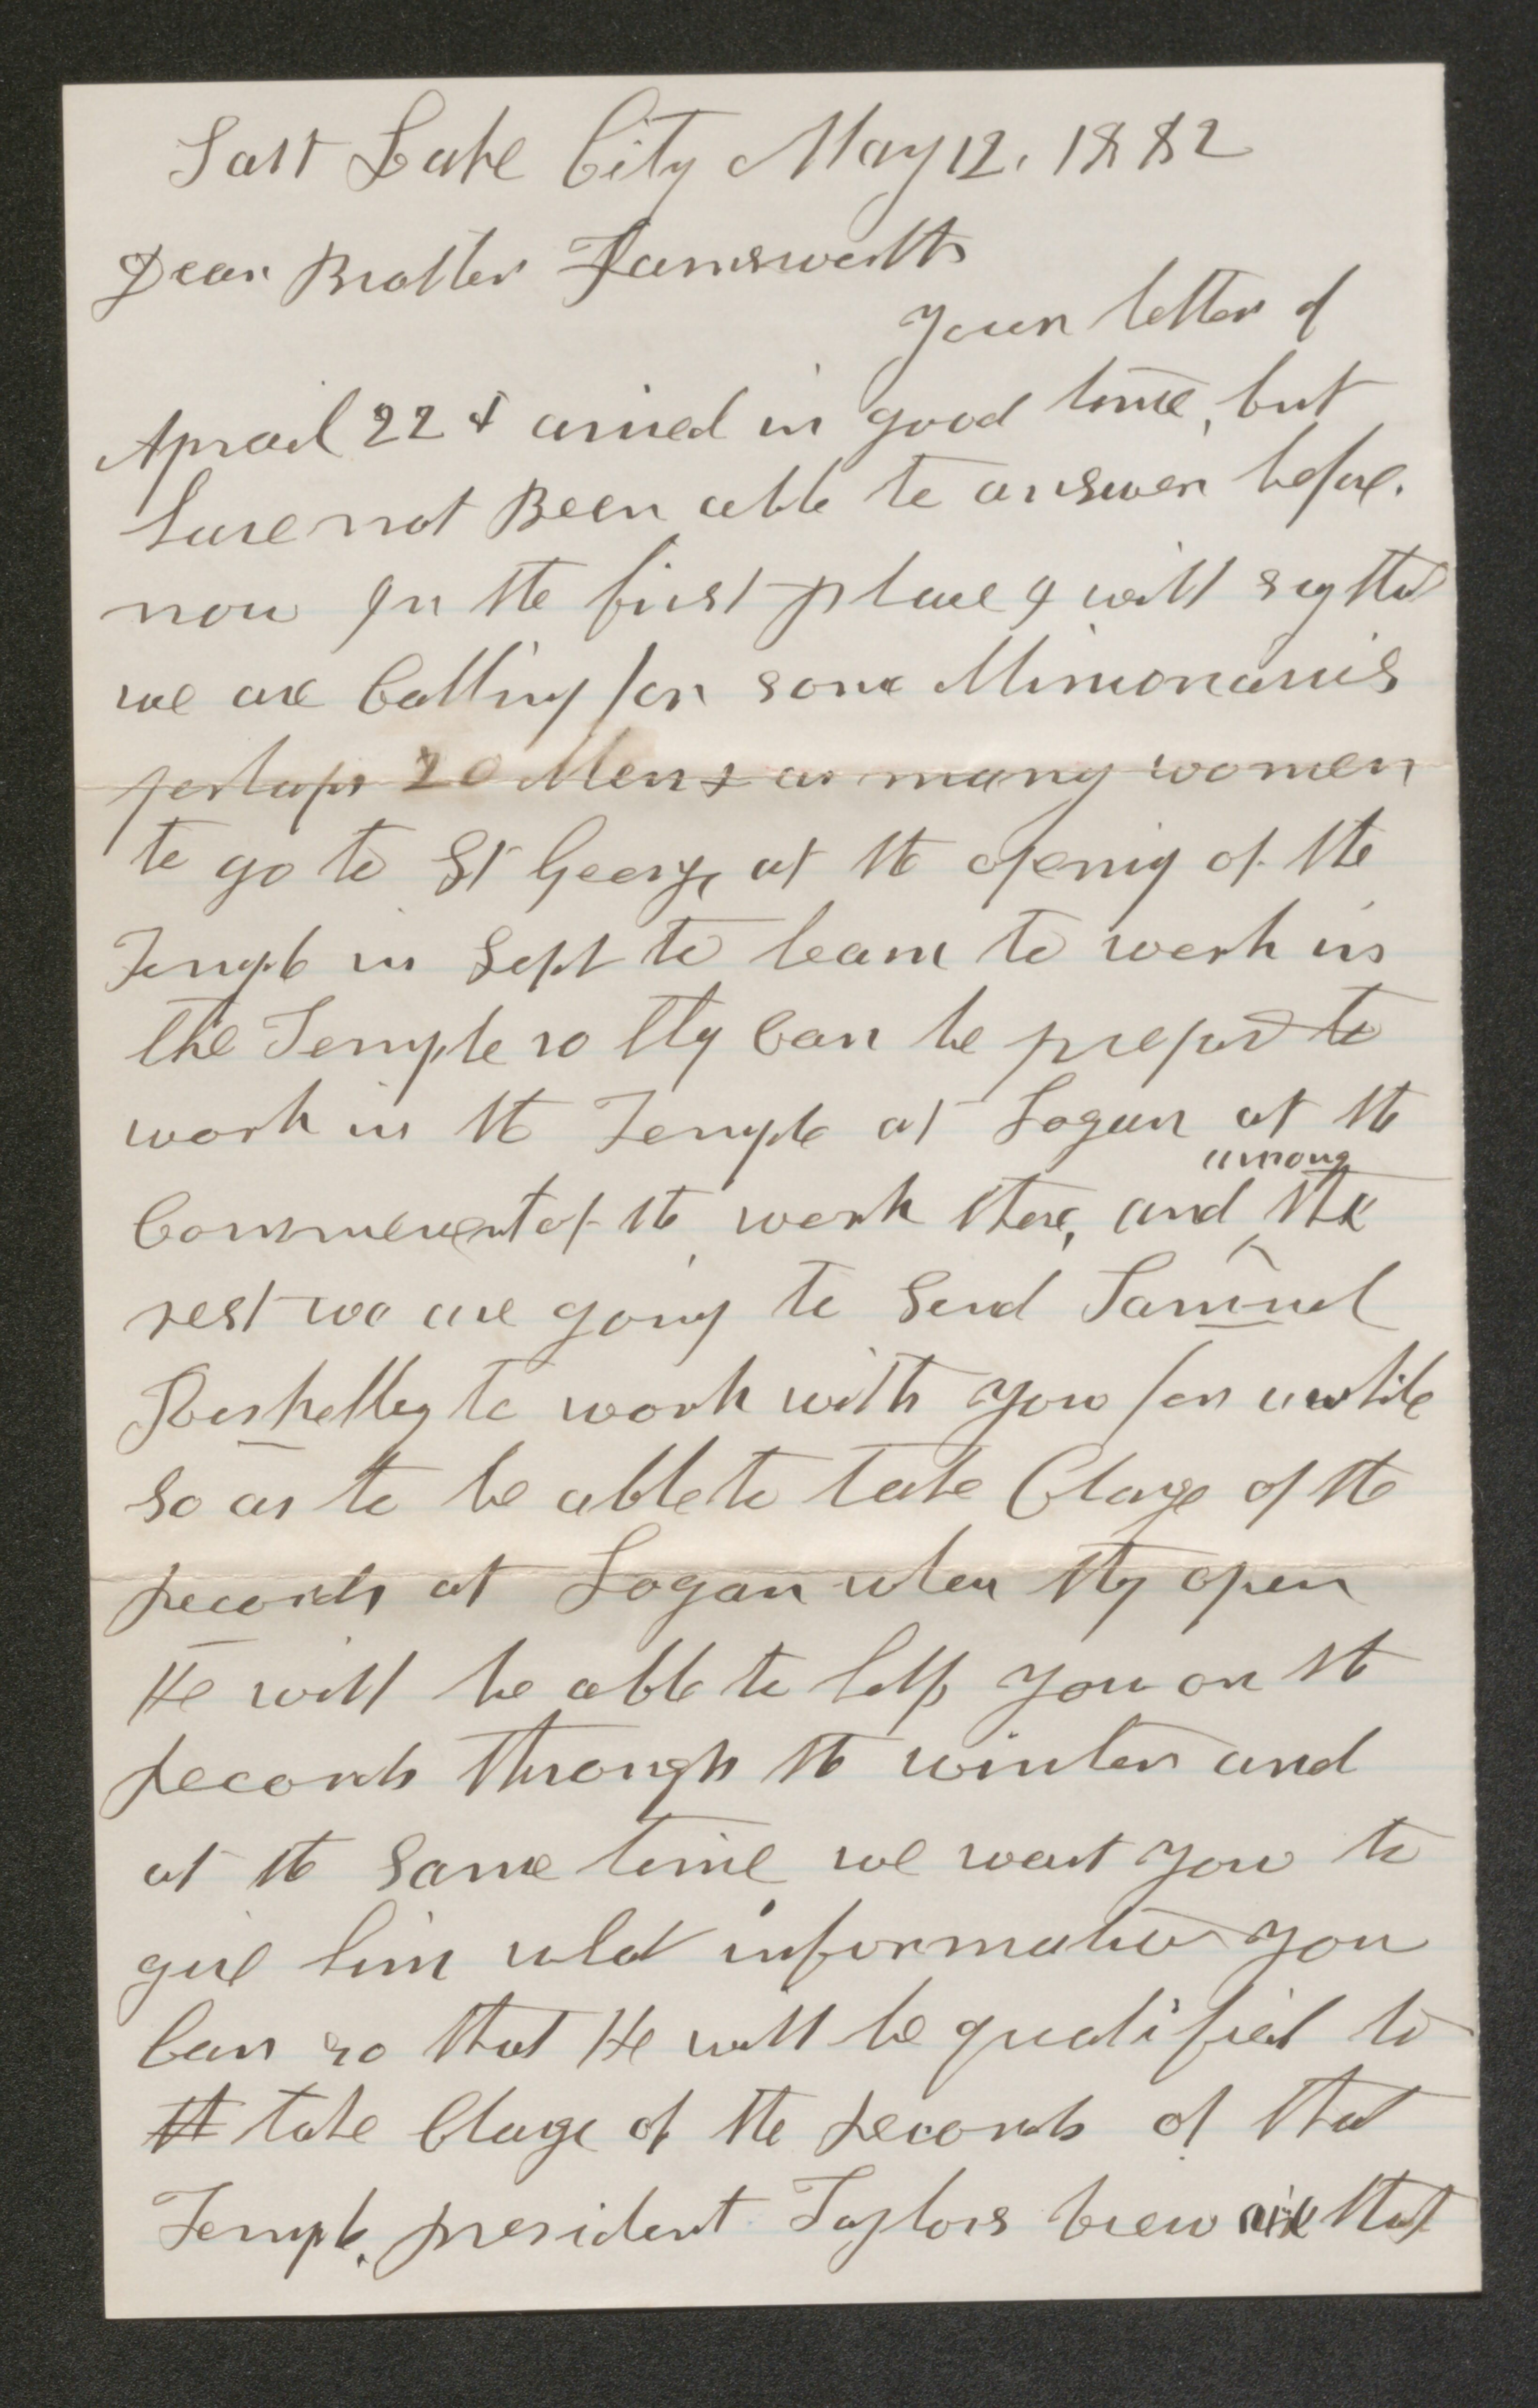 Salt Lake City May 12. 1882
Dear Brother Farnsworth
Your letter of
Aprail 22d arived in good time, but
have not Been able to answer before.
now In the first place I will say that
we are Calling for some Missionaries
perhaps 20 Men & as many women
to go to St George at the opening of the
Temple in Sept to learn to work in
the Temple so they Can be prepard to
work in the Temple at Logan at the
Commencent of the work there, and among the
rest we are going to Send Samuel
Roskelley to work with you for awhile
so as to be able to take Charge of the
records at Logan when they open
He will be able to help you on the
records through the winter and
at the same time we want you to
give him what information you
Can so that He will be qualified to
take Charge of the records of that
Temple. president Taylors that